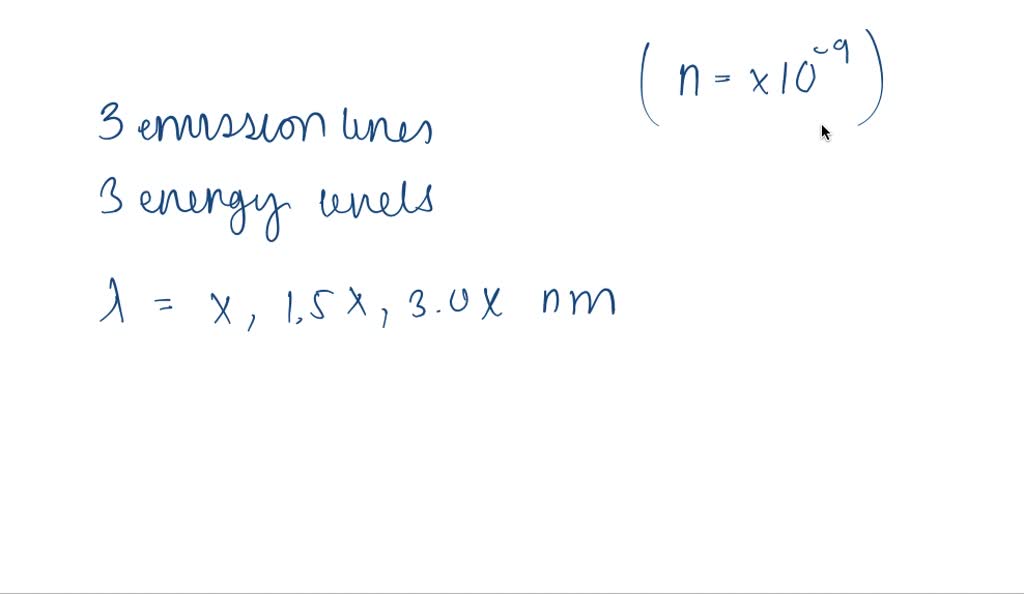 (n = x10^-9)
3 emission lines
3 energy levels
λ = x, 1.5x, 3.0x nm